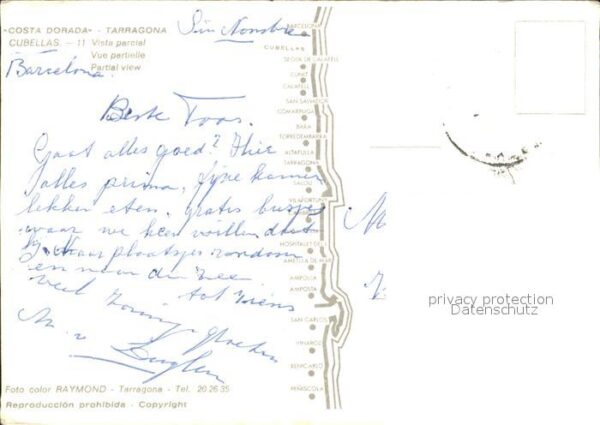 «COSTA DORADA» - TARRAGONA
CUBELLAS. — 11 Vista parcial
Vue partielle
Partial view
Barcelona.
Beste Toos.
Gaat alles goed? Hier
alles prima, fijne kamer
lekker eten, gratis busjes
waar we heen willen dat
plaatsjes rondom
en naar de zee
veel zonnige
tot ziens
M. v
Foto color RAYMOND - Tarragona - Tel. 20.26.35
Reproducción prohibida - Copyright
BARCELONA
CUBELLAS
SEGUR DE CALAFELL
CUNIT
CALAFELL
SAN SALVADOR
COMARRUGA
BARA
TORREDEMBARRA
ALTAFULLA
TARRAGONA
SALOU
HOSPITALET
AMETLLA DE MAR
AMPOLLA
AMPOSTA
SAN CARLOS
VINAROZ
BENICARLO
PEÑISCOLA
M
privacy protection
Datenschutz